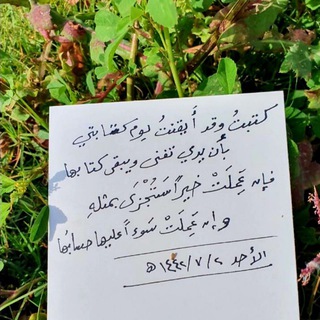 كتبتُ وقد أيقنتُ يوم كتابتي
بأن يدي تفنى ويبقى كتابها
فإن عَمِلَتْ خيراً ستُجْزَى بمثلهِ
وإن عَمِلَتْ سوءاً عليها حسابُها
الأحد ٢ / ٧ / ١٤٤٢ هـ